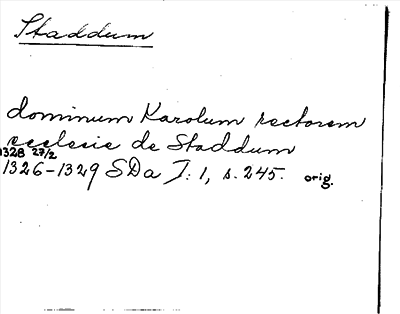 Staddum
dominum Karolum rectorem
ecclesie de Staddum
1328 27/2
1326-1329 SDa I: 1, s. 245. orig.